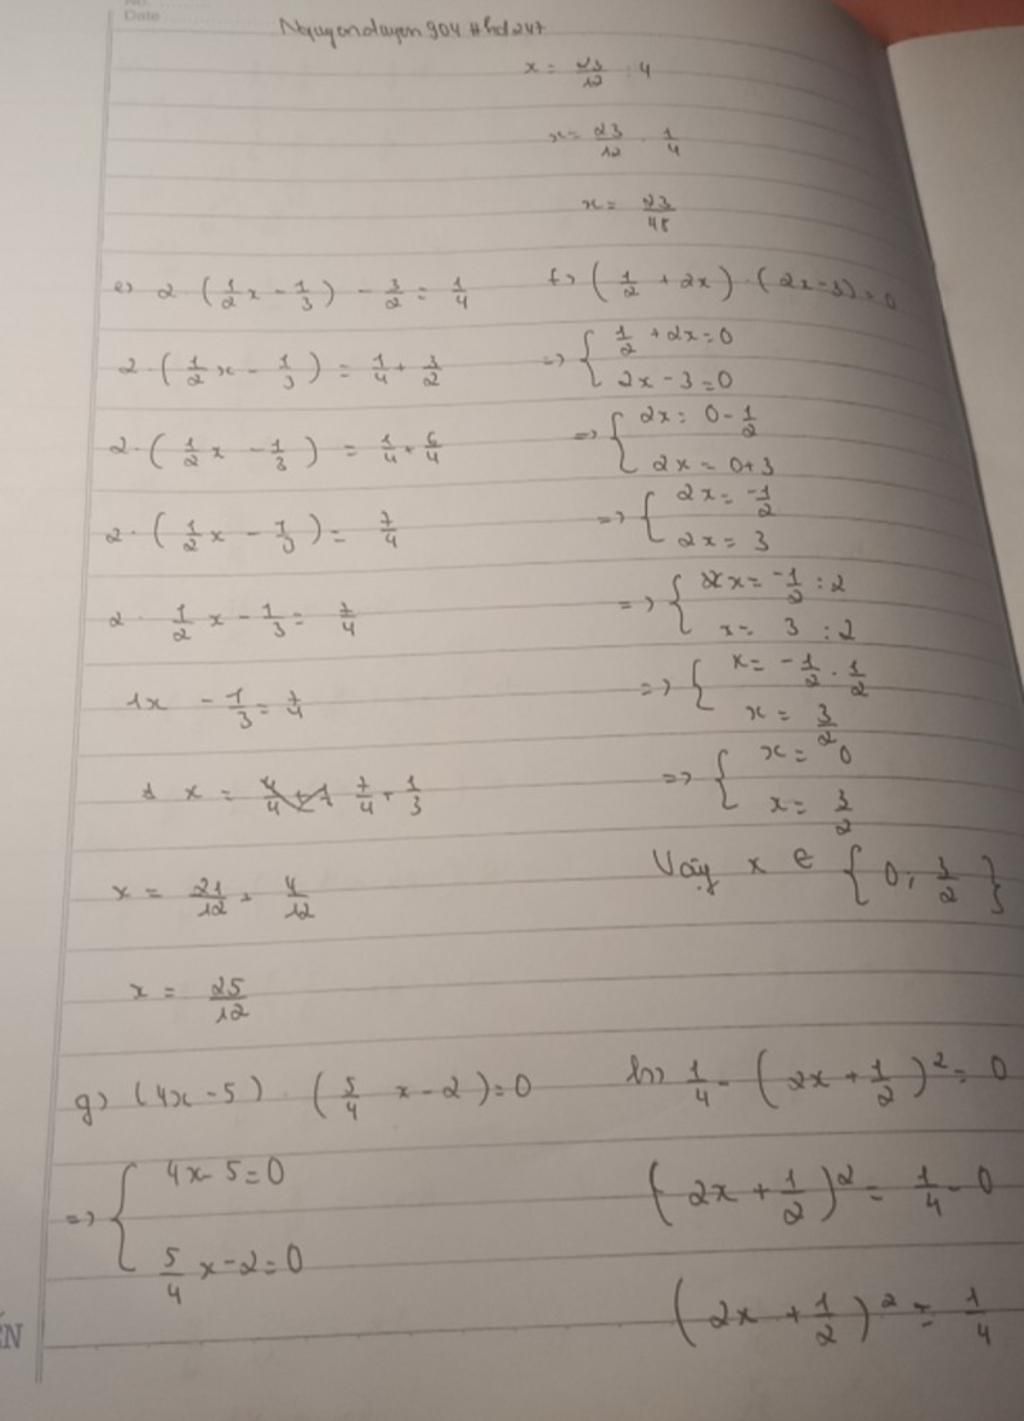 Date
Nguyenduyen904 #hd247
x = 23/12 : 4
x = 23/12 . 1/4
x = 23/48
e) 2 . (1/2 x - 1/3) - 3/2 = 1/4
2 . (1/2 x - 1/3) = 1/4 + 3/2
2 . (1/2 x - 1/3) = 1/4 + 6/4
2 . (1/2 x - 1/3) = 7/4
2 . 1/2 x - 1/3 = 7/4
1x - 1/3 = 7/4
1 x = 7/4 + 1/3
x = 21/12 + 4/12
x = 25/12
f) (1/2 + 2x) . (2x - 3) = 0
=> { 1/2 + 2x = 0
2x - 3 = 0
=> { 2x = 0 - 1/2
2x = 0 + 3
=> { 2x = -1/2
2x = 3
=> { x = -1/2 : 2
x = 3 : 2
=> { x = -1/2 . 1/2
x = 3/2
=> { x = 0
x = 3/2
Vậy x ∈ { 0 ; 3/2 }
g) (4x - 5) . (5/4 x - 2) = 0
=> { 4x - 5 = 0
5/4 x - 2 = 0
h) 1/4 - (2x + 1/2)² = 0
(2x + 1/2)² = 1/4 - 0
(2x + 1/2)² = 1/4